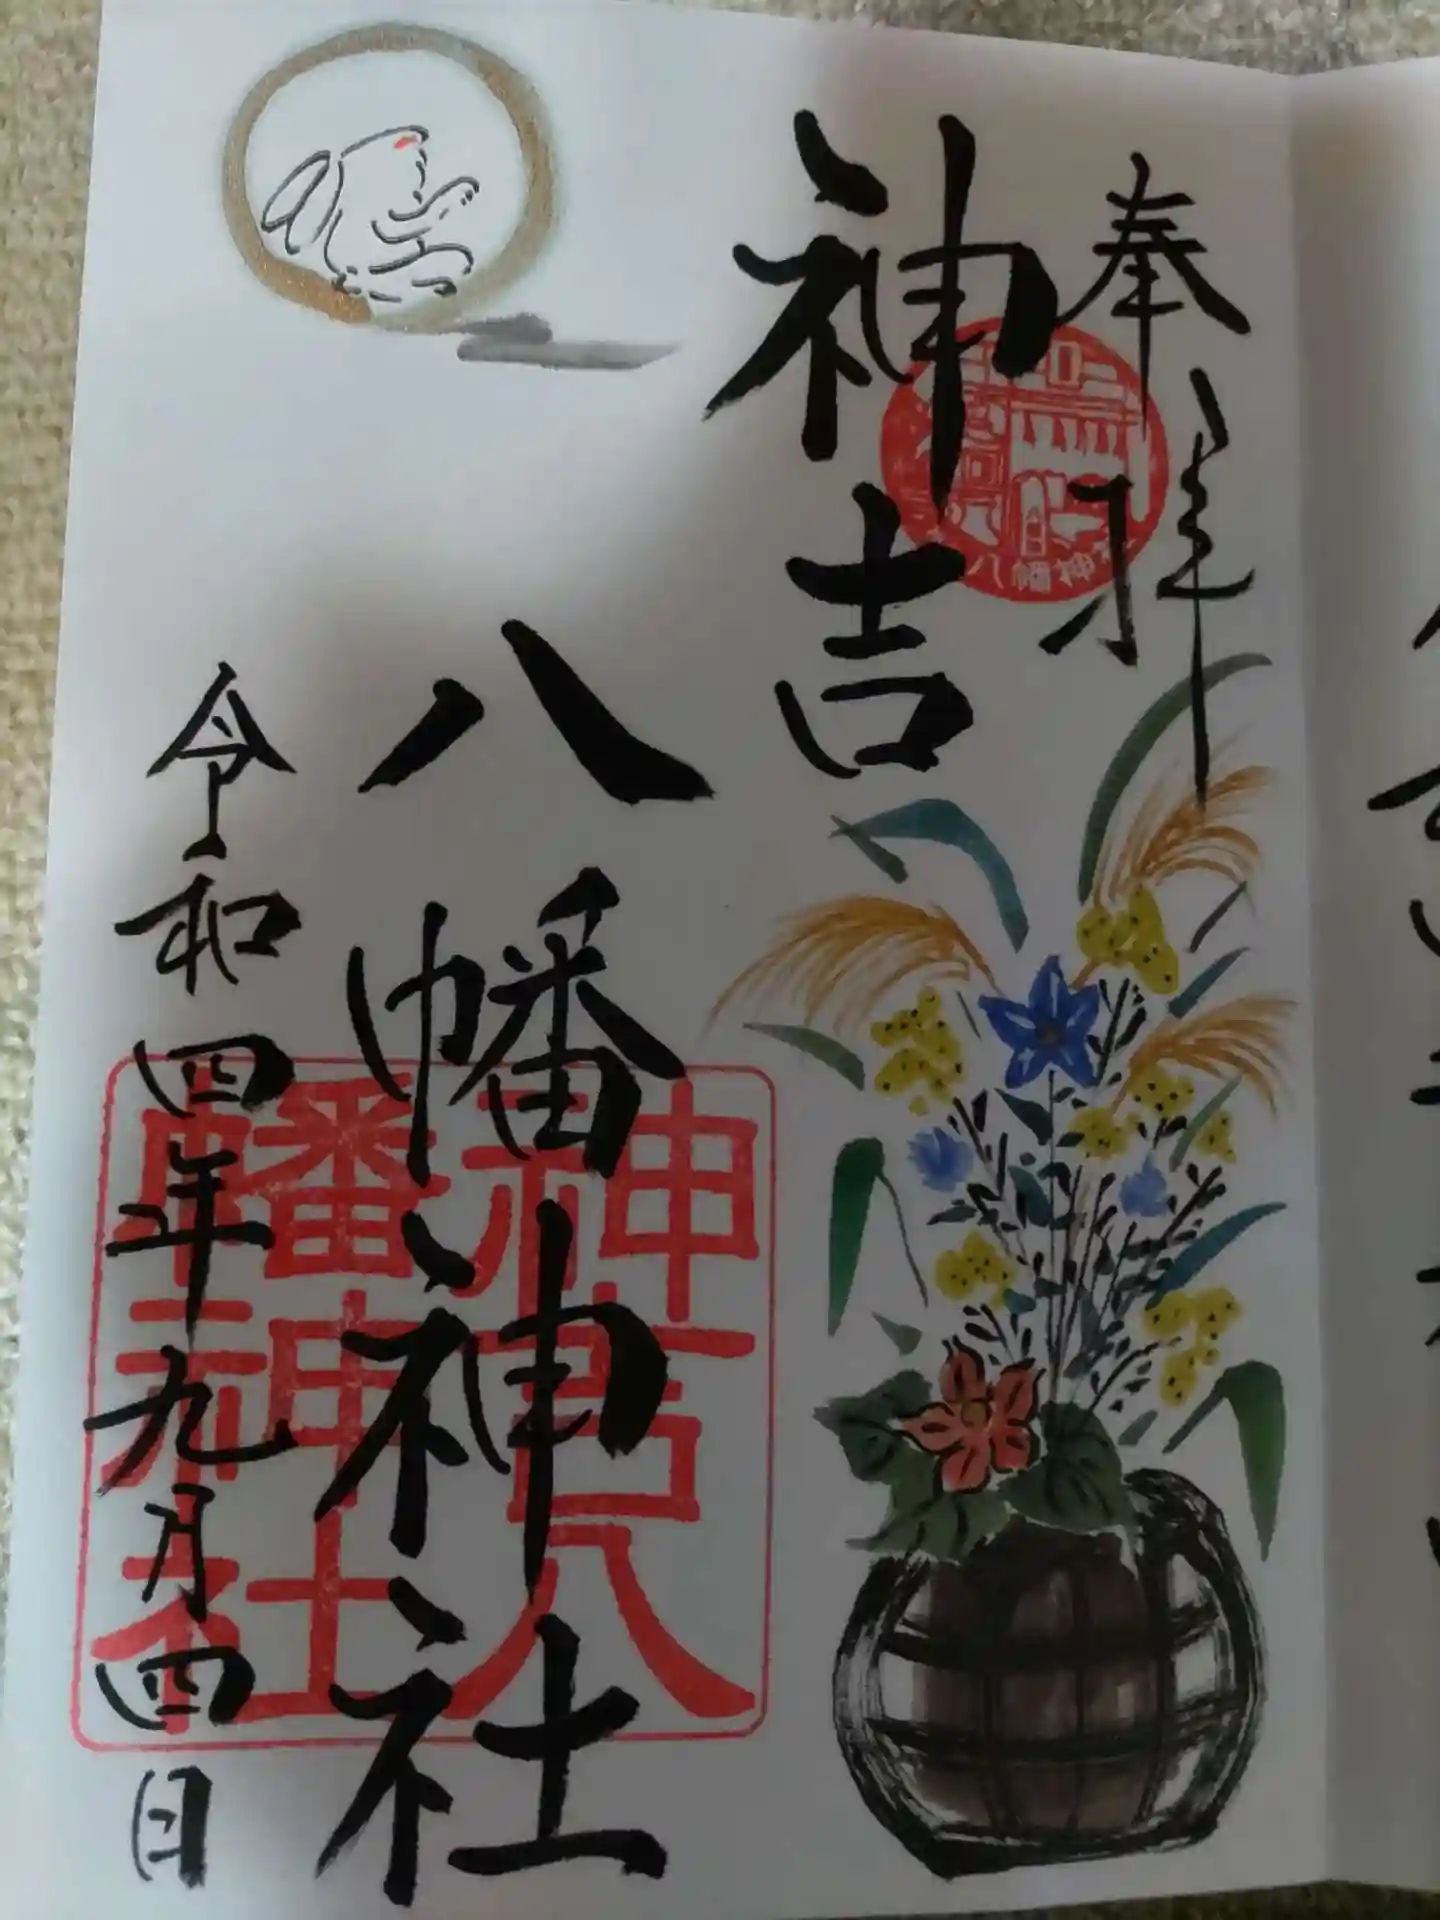 奉拝
神吉
八幡神社
令和四年九月四日
八幡神
神吉八
幡神社